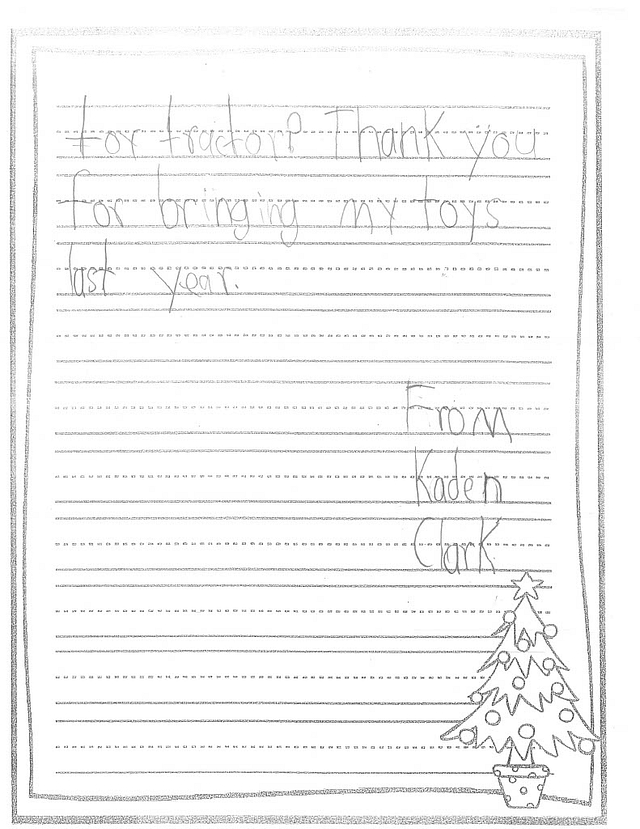 for tractor? Thank you
for bringing my toys
last year.
From
Kaden
Clark